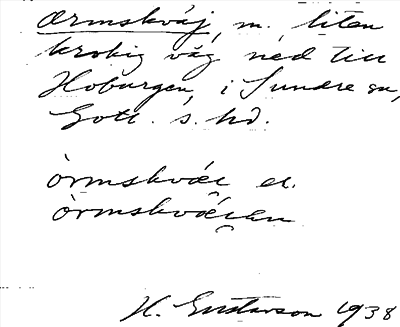 ormskväj, m. liten
krokig väg ned till
Hoburgen, i Sundre sn,
Gotl. s. hd.
òrmskvæi el.
òrmskvæien
H. Gustavson 1938